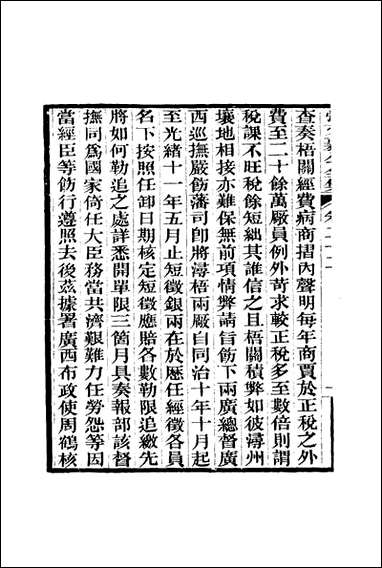 查奏梧關經費病商摺內聲明每年商賈於正稅之外
費至二十餘萬厰員例外苛求較正稅多至數倍則謂
稅課不旺稅餘短絀其誰信之且梧關積弊如彼潯州
壤地相接亦難保無前項情弊請旨飭下兩廣總督廣
西巡撫嚴飭藩司卽將潯梧兩厰自同治十年十月起
至光緒十一年五月止短徵銀兩在於歷任經徵各員
名下按照任卸日期核定短徵應賠各數勒限追繳先
將如何勒追之處詳悉開單限三箇月具奏報部該督
撫同為國家倚任大臣務當共濟艱難力任勞怨等因
當經臣等飭行遵照去後茲據署廣西布政使周鶴核